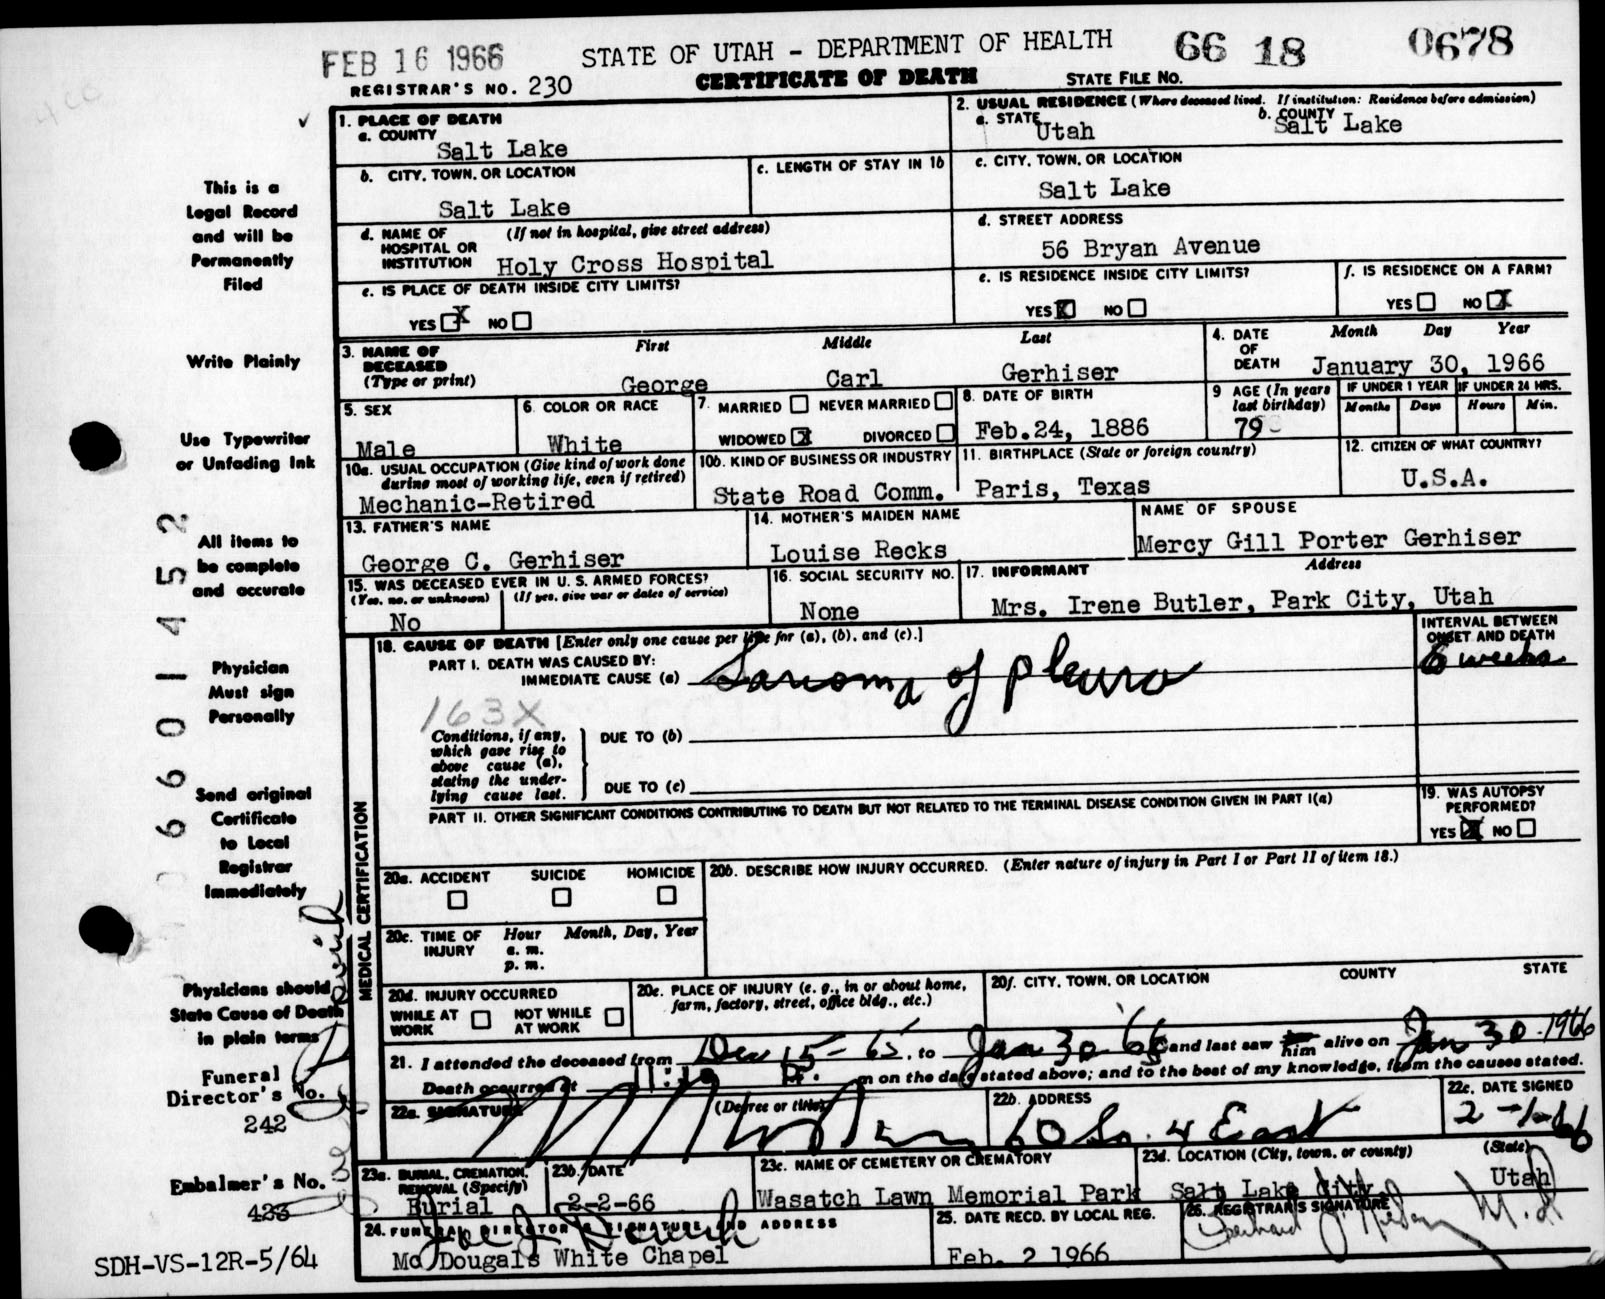 FEB 16 1966
STATE OF UTAH - DEPARTMENT OF HEALTH
66 18 0678
REGISTRAR'S NO. 230
CERTIFICATE OF DEATH
STATE FILE NO.
This is a
Legal Record
and will be
Permanently
Filed
Write Plainly
Use Typewriter
or Unfading Ink
All items to
be complete
and accurate
Physician
Must sign
Personally
Send original
Certificate
to Local
Registrar
Immediately
Physicians should
State Cause of Death
in plain terms
Funeral
Director's No.
242
Embalmer's No.
423
SDH-VS-12R-5/64
6601452
1. PLACE OF DEATH
a. COUNTY
Salt Lake
b. CITY, TOWN, OR LOCATION
Salt Lake
c. LENGTH OF STAY IN 1b
d. NAME OF HOSPITAL OR INSTITUTION (If not in hospital, give street address)
Holy Cross Hospital
e. IS PLACE OF DEATH INSIDE CITY LIMITS?
YES X NO
2. USUAL RESIDENCE (Where deceased lived. If institution: Residence before admission)
a. STATE Utah
b. COUNTY Salt Lake
c. CITY, TOWN, OR LOCATION
Salt Lake
d. STREET ADDRESS
56 Bryan Avenue
e. IS RESIDENCE INSIDE CITY LIMITS?
YES X NO
f. IS RESIDENCE ON A FARM?
YES NO X
3. NAME OF DECEASED (Type or print)
First Middle Last
George Carl Gerhiser
4. DATE OF DEATH
Month Day Year
January 30, 1966
5. SEX
Male
6. COLOR OR RACE
White
7. MARRIED NEVER MARRIED
WIDOWED X DIVORCED
8. DATE OF BIRTH
Feb.24, 1886
9 AGE (In years last birthday)
79
IF UNDER 1 YEAR IF UNDER 24 HRS.
Months Days Hours Min.
10a. USUAL OCCUPATION (Give kind of work done during most of working life, even if retired)
Mechanic-Retired
10b. KIND OF BUSINESS OR INDUSTRY
State Road Comm.
11. BIRTHPLACE (State or foreign country)
Paris, Texas
12. CITIZEN OF WHAT COUNTRY?
U.S.A.
13. FATHER'S NAME
George C. Gerhiser
14. MOTHER'S MAIDEN NAME
Louise Recks
NAME OF SPOUSE
Mercy Gill Porter Gerhiser
15. WAS DECEASED EVER IN U. S. ARMED FORCES?
(Yes, no, or unknown) (If yes, give war or dates of service)
No
16. SOCIAL SECURITY NO.
None
17. INFORMANT Address
Mrs. Irene Butler, Park City, Utah
MEDICAL CERTIFICATION
18. CAUSE OF DEATH [Enter only one cause per line for (a), (b), and (c).]
PART I. DEATH WAS CAUSED BY:
IMMEDIATE CAUSE (a) Sarcoma of pleura
INTERVAL BETWEEN ONSET AND DEATH
6 weeks
163X
Conditions, if any, which gave rise to above cause (a), stating the underlying cause last.
DUE TO (b)
DUE TO (c)
PART II. OTHER SIGNIFICANT CONDITIONS CONTRIBUTING TO DEATH BUT NOT RELATED TO THE TERMINAL DISEASE CONDITION GIVEN IN PART I(a)
19. WAS AUTOPSY PERFORMED?
YES X NO
20a. ACCIDENT SUICIDE HOMICIDE
20b. DESCRIBE HOW INJURY OCCURRED. (Enter nature of injury in Part I or Part II of item 18.)
20c. TIME OF INJURY Hour Month, Day, Year
a. m.
p. m.
20d. INJURY OCCURRED
WHILE AT WORK NOT WHILE AT WORK
20e. PLACE OF INJURY (e. g., in or about home, farm, factory, street, office bldg., etc.)
20f. CITY, TOWN, OR LOCATION COUNTY STATE
21. I attended the deceased from Dec 15-65, to Jan 30 '66 and last saw him alive on Jan 30-1966
Death occurred at P. m on the date stated above; and to the best of my knowledge, from the causes stated.
22a. SIGNATURE (Degree or title)
22b. ADDRESS
60 So. 4 East
22c. DATE SIGNED
2-1-66
23a. BURIAL, CREMATION, REMOVAL (Specify)
Burial
23b. DATE
2-2-66
23c. NAME OF CEMETERY OR CREMATORY
Wasatch Lawn Memorial Park
23d. LOCATION (City, town, or county) (State)
Salt Lake City Utah
24. FUNERAL DIRECTOR'S SIGNATURE AND ADDRESS
Mc Dougals White Chapel
25. DATE RECD. BY LOCAL REG.
Feb. 2 1966
26. REGISTRAR'S SIGNATURE